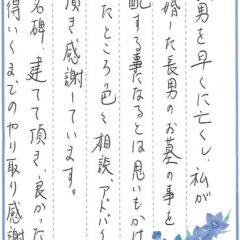 男を早くに亡くし、私が
婚した長男のお墓の事を
配する事になるとは思いもかけ
たところ色々相談、アドバイ
頂き感謝しています。
名碑、建てて頂き、良かった
得いくまでのやり取り感謝